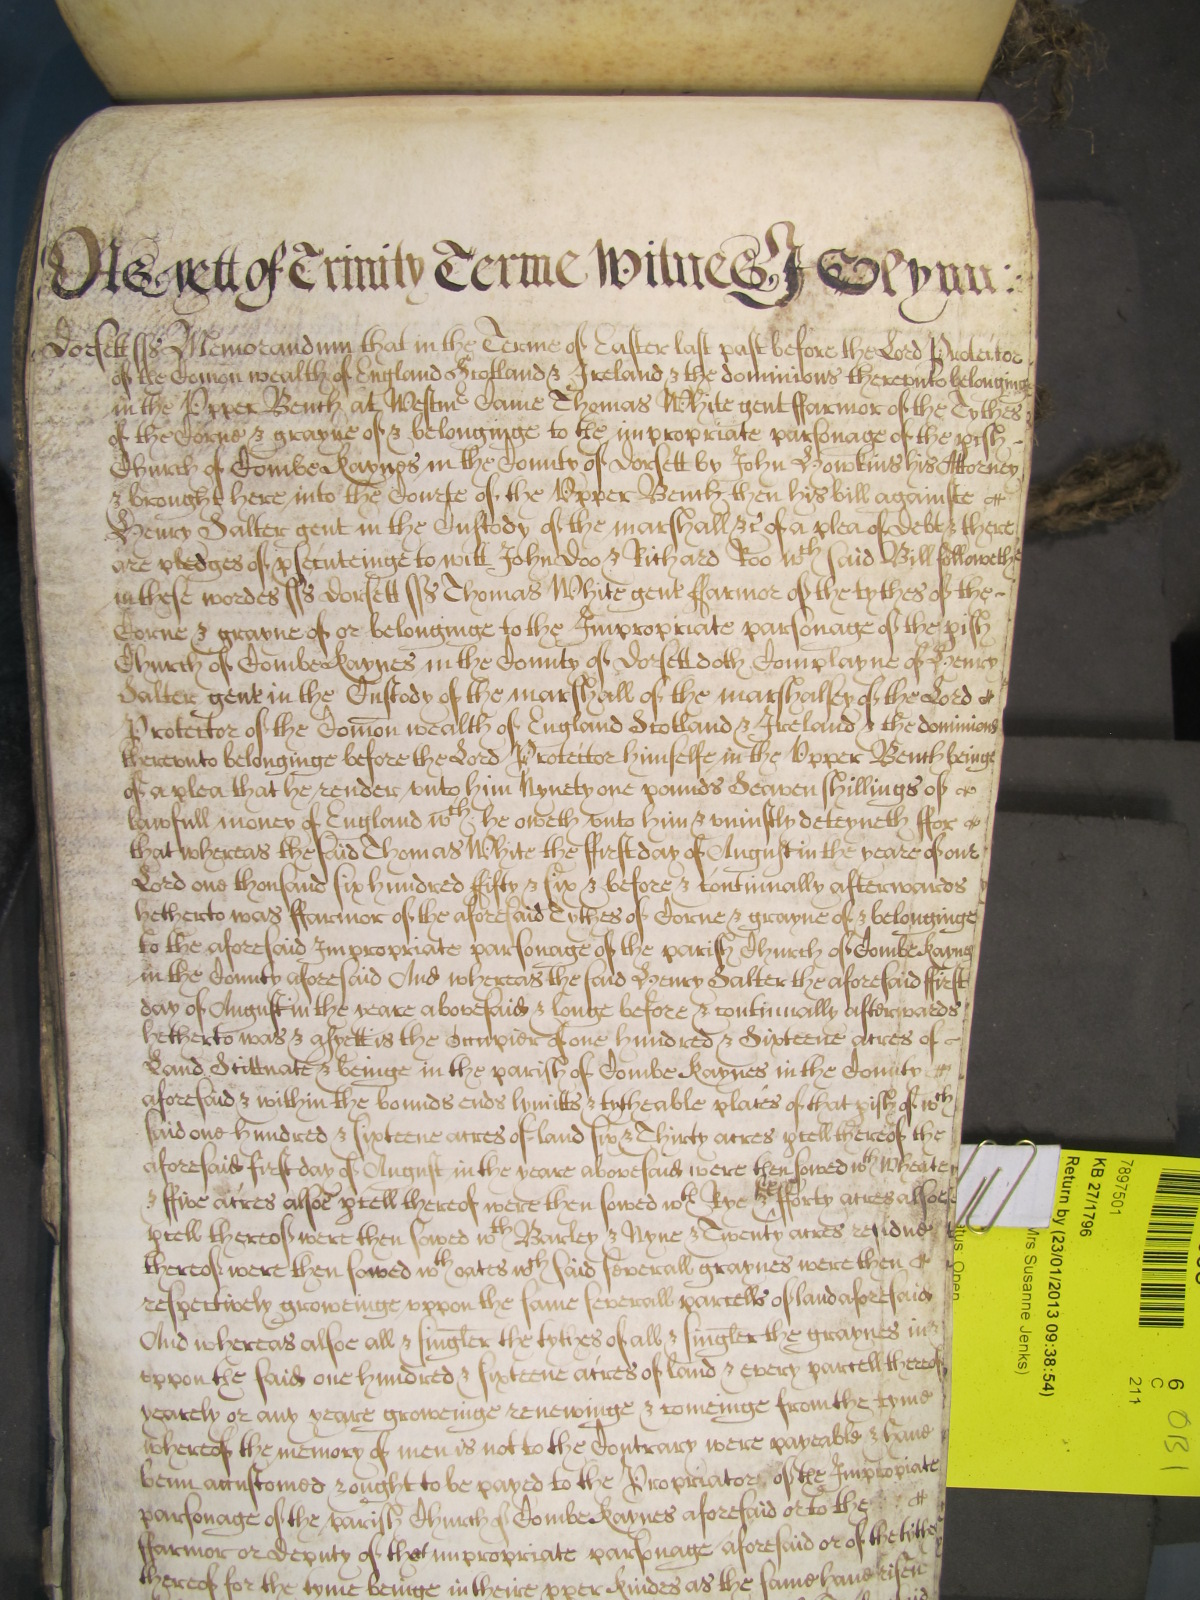 As yett of Trinity Terme Witnes J Glynn:
Dorsett ss Memorandum that in the Terme of Easter last past before the Lord Protector
of the Comon wealth of England Scotland & Ireland & the dominions therevnto belonginge
in the Vpper Bench at Westmr Came Thomas White gent ffarmor of the Tythes
of the Corne & grayne of & belonginge to the impropriate parsonage of the pish
Church of Combe Kaynes in the County of Dorsett by John Howkins his Attorney
& brought here into the Courte of the Vpper Bench then his bill againste
Henry Salter gent in the Custody of the marshall &c of a plea of debt & there
are pledges of psecuteinge to witt John Doo & Richard Roo wch said Bill followeth
in these wordes ss Dorsett ss Thomas White gent ffarmor of the tythes of the
Corne & grayne of or belonginge to the Impropriate parsonage of the pish
Church of Combe Kaynes in the County of Dorsett doth Complayne of Henry
Salter gent in the Custody of the marshall of the marshalsey of the Lord
Protector of the Comon wealth of England Scotland & Ireland & the dominions
therevnto belonginge before the Lord Protector himselfe in the Vpper Bench beinge
of a plea that he render vnto him Nynety one pounds Seaven shillings of
lawfull money of England wch he oweth vnto him & vniustly deteyneth ffor
that whereas the said Thomas White the ffirst day of August in the yeare of our
Lord one thousand six hundred ffifty & six & before & continually afterwards
hetherto was ffarmor of the aforesaid Tythes of Corne & grayne of & belonginge
to the aforesaid Impropriate parsonage of the parish Church of Combe Kaynes
in the County aforesaid And whereas the said Henry Salter the aforesaid ffirst
day of August in the yeare abovesaid & longe before & continually afterwards
hetherto was & as yett is the Occupier of one hundred & Sixteene acres of
Land Scittuate & beinge in the parish of Combe Kaynes in the County
aforesaid & within the bounds ends lymitts & tytheable places of that pish of wch
said one hundred & sixteene acres of land six & Thirty acres pcell thereof the
aforesaid first day of August in the yeare abovesaid were then sowed wth Wheate
& ffive acres alsoe pcell thereof were then sowed wth Rye & fforty acres alsoe
pcell thereof were then sowed wth Barley & Nyne & Twenty acres residue
thereof were then sowed wth oates wch said severall graynes were then
respectively groweinge vppon the same severall parcells of land aforesaid
And whereas alsoe all & singler the tythes of all & singler the graynes in &
vppon the said one hundred & sixteene acres of land & every parcell thereof
yearely or any yeare groweinge renewinge & comeinge from the tyme
whereof the memory of men is not to the Contrary were payeable & have
benn accustomed & ought to be payed to the Propriator of the Impropiate
parsonage of the parish Church of Combe Kaynes aforesaid or to the
ffarmor or deputy of that impropriate parsonage aforesaid or of the tithes
thereof for the tyme beinge in theire pper kindes as the same have risen
7897501
KB 27/1796
Return by (23/01/2013 09:38:54)
Mrs Susanne Jenks)
Open
6
C
211